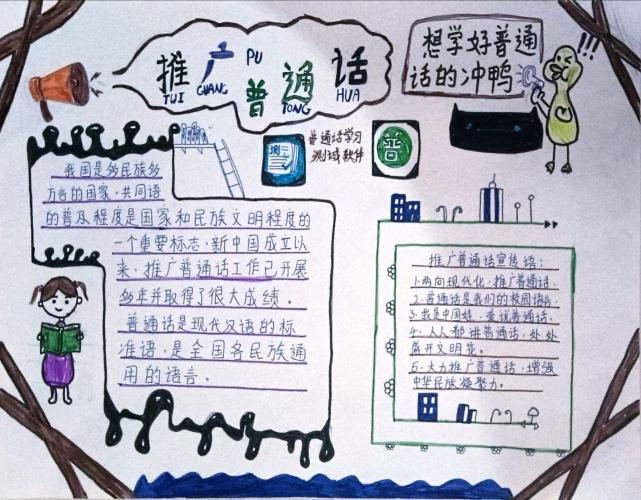 推广普通话
TUI GUANG PU TONG HUA
想学好普通
话的冲鸭
!!!
测
普通话学习
测试软件
普
我国是多民族多
方言的国家,共同语
的普及程度是国家和民族文明程度的
一个重要标志,新中国成立以
来,推广普通话工作已开展
多年并取得了很大成绩。
普通话是现代汉语的标
准语,是全国各民族通
用的语言。
推广普通话宣传语:
1.面向现代化,推广普通话.
2.普通话是我们的校园语言.
3.我是中国娃,爱说普通话.
4.人人都讲普通话,处处
盛开文明花。
5.大力推广普通话,增强
中华民族凝聚力。